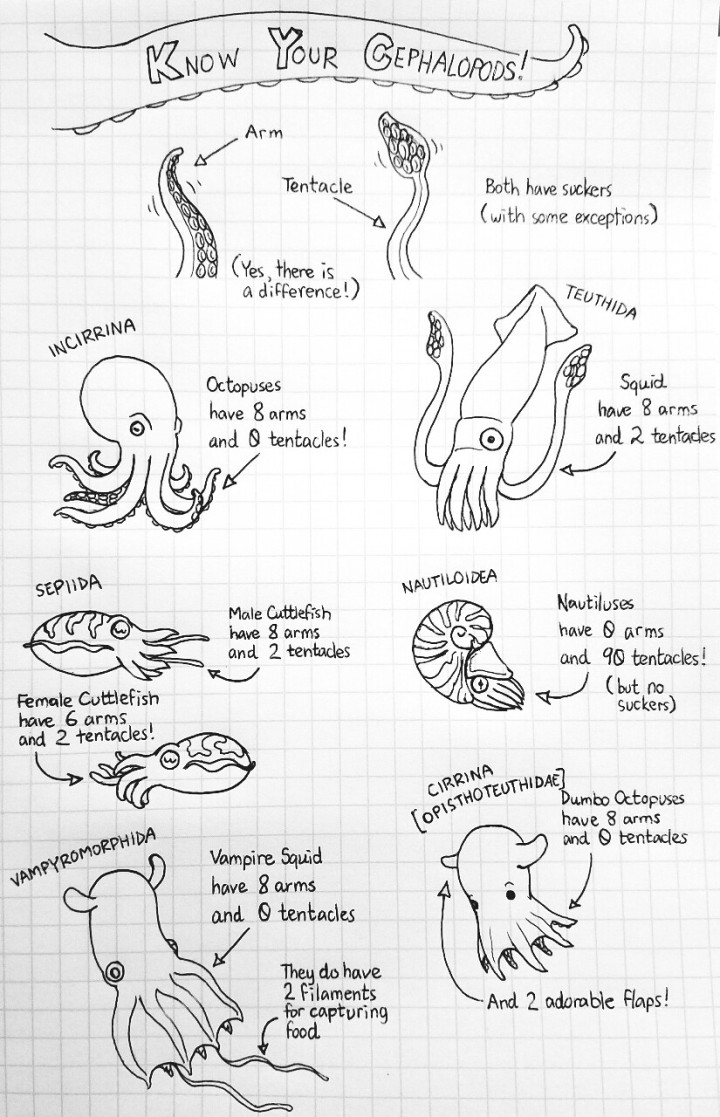 KNOW YOUR CEPHALOPODS!
Arm
Tentacle
Both have suckers
(with some exceptions)
(Yes, there is
a difference!)
INCIRRINA
Octopuses
have 8 arms
and 0 tentacles!
TEUTHIDA
Squid
have 8 arms
and 2 tentacles
SEPIIDA
Male Cuttlefish
have 8 arms
and 2 tentacles
Female Cuttlefish
have 6 arms
and 2 tentacles!
NAUTILOIDEA
Nautiluses
have 0 arms
and 90 tentacles!
(but no
suckers)
VAMPYROMORPHIDA
Vampire Squid
have 8 arms
and 0 tentacles
They do have
2 filaments
for capturing
food
CIRRINA
[OPISTHOTEUTHIDAE]
Dumbo Octopuses
have 8 arms
and 0 tentacles
And 2 adorable flaps!